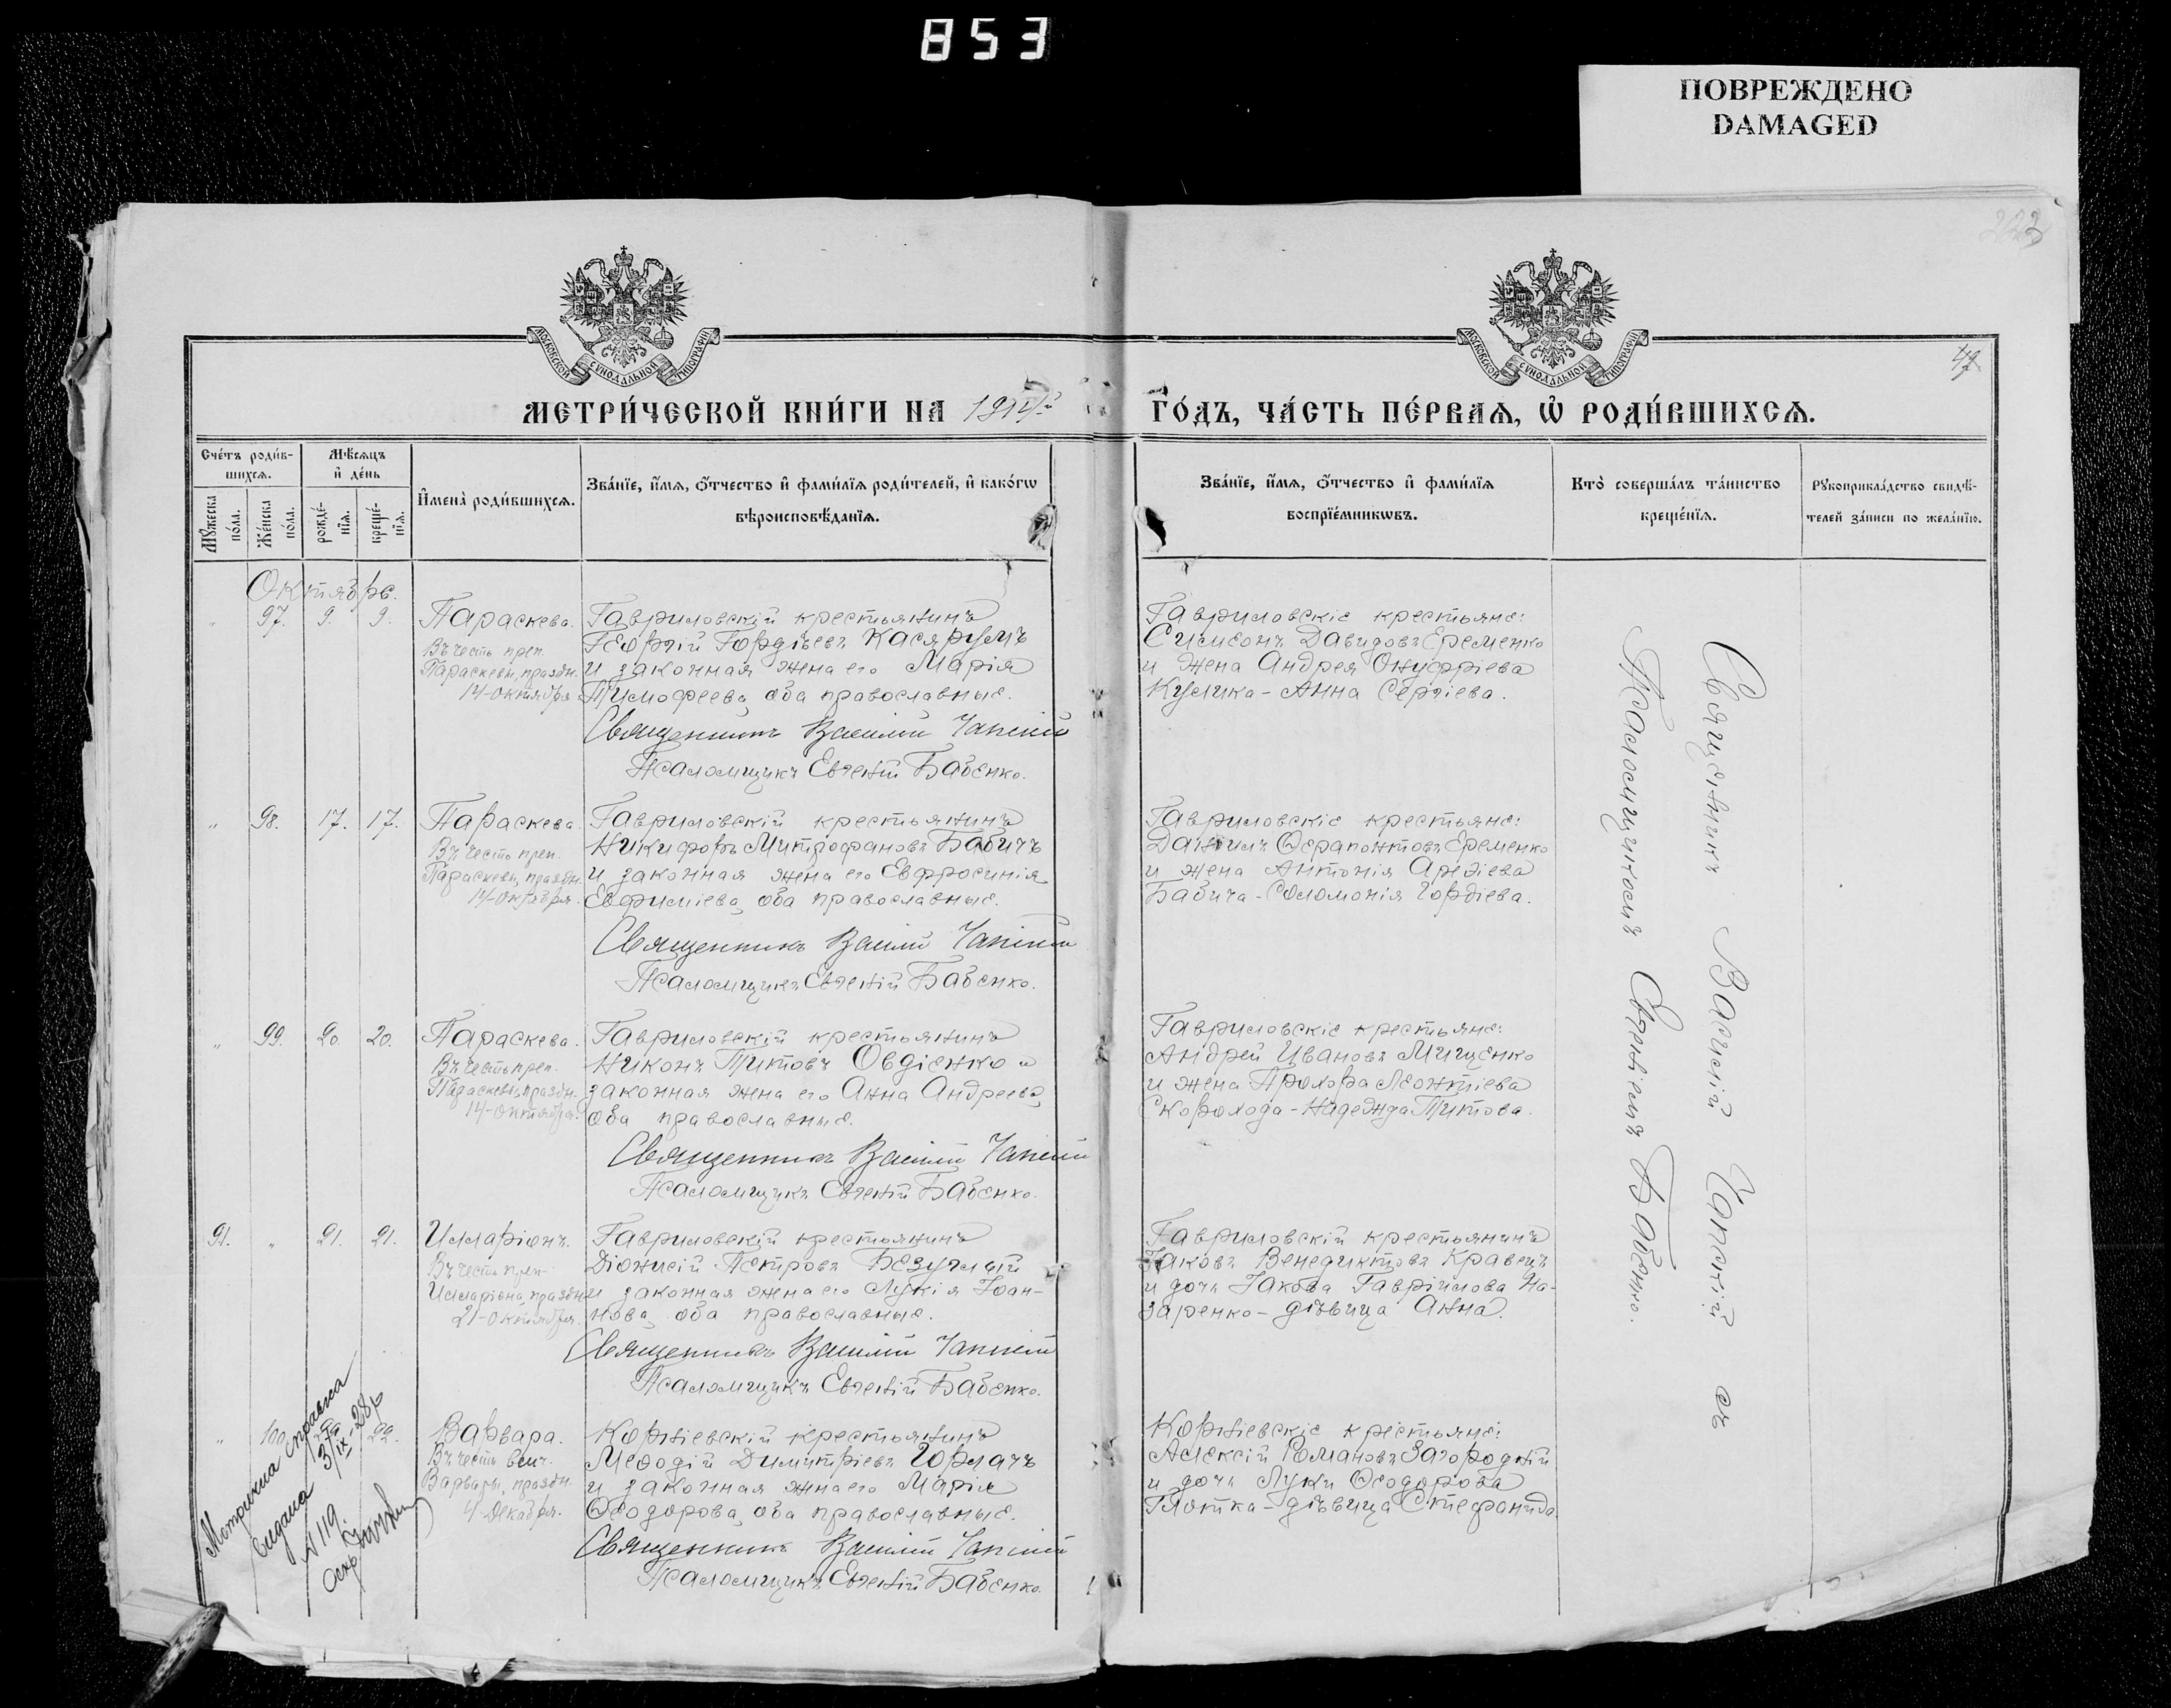 853
ПОВРЕЖДЕНО
DAMAGED
МОСКОВСКОЙ СѴНОДАЛЬНОЙ ТИПОГРАФІИ
МОСКОВСКОЙ СѴНОДАЛЬНОЙ ТИПОГРАФІИ
49
МЕТРИ́ЧЕСКОЙ КНИ́ГИ НА 1914й ГО́ДЪ, ЧА́СТЬ ПЕ́РВАѦ, Ѡ҆ РОДИ́ВШИХСѦ.
Сче́тъ роди́вшихсѧ.
Мѣ́сѧцъ и҆ де́нь
Мꙋ́жеска по́ла.
Же́нска по́ла.
рожде́нїѧ.
креще́нїѧ.
И҆мена̀ роди́вшихсѧ.
Зва́нїе, и҆́мѧ, ѻ҆́тчество и҆ фами́лїѧ роди́телей, и҆ како́гѡ
вѣроисповѣ́данїѧ.
Зва́нїе, и҆́мѧ, ѻ҆́тчество и҆ фами́лїѧ
воспрїе́мникѡвъ.
Кто̀ соверша́лъ та́инство
креще́нїѧ.
Рꙋкоприкла́дство свидѣ́-
телей за́писи по жела́нїю.
Октябрь.
" 97. 9. 9.
Параскева.
Въ честь преп.
Параскевы, праздн.
14-Октября
Гавриловскій крестьянинъ
Георгій Гордіевъ Касярумъ
и законная жена его Марія
Тимофеева, оба православные.
Священникъ Василій Чапскій
Псаломщикъ Евгеній Бабенко.
Гавриловскіе крестьяне:
Симеонъ Давидовъ Еременко
и жена Андрея Онуфріева
Кулика - Анна Сергіева.
" 98. 17. 17.
Параскева.
Въ честь преп.
Параскевы, праздн.
14-Октября.
Гавриловскій крестьянинъ
Никифоръ Митрофановъ Бабичъ
и законная жена его Евфросинія
Евфиміева, оба православные.
Священникъ Василій Чапскій
Псаломщикъ Евгеній Бабенко.
Гавриловскіе крестьяне:
Даніилъ Ѳерапонтовъ Еременко
и жена Антонія
Бабича - Соломонія Гордіева.
" 99. 20. 20.
Параскева.
Въ честь преп.
Параскевы, праздн.
14-Октября.
Гавриловскій крестьянинъ
Никонъ Титовъ Овдіенко и
законная жена его Анна Андреева,
оба православные.
Священникъ Василій Чапскій
Псаломщикъ Евгеній Бабенко.
Гавриловскіе крестьяне:
Андрей Ивановъ Мищенко
и жена Прохора Леонтіева
Скорохода - Надежда Титова.
91. " 21. 21.
Илларіонъ.
Въ честь преп.
Илларіона, праздн.
21-Октября.
Гавриловскій крестьянинъ
Діонисій Петровъ Безуглый
и законная жена его Лукія Іоан-
нова, оба православные.
Священникъ Василій Чапскій
Псаломщикъ Евгеній Бабенко.
Гавриловскій крестьянинъ
Іаковъ Венедиктовъ Кравецъ
и дочь Іакова Гавріилова На-
заренко - дѣвица Анна.
" 100. 22.
Варвара.
Въ честь велич.
Варвары, праздн.
4-Декабря.
Корніевскій крестьянинъ
Меѳодій Димитріевъ Горлачъ
и законная жена его Марія
Ѳеодорова, оба православные.
Священникъ Василій Чапскій
Псаломщикъ Евгеній Бабенко.
Корніевскіе крестьяне:
Алексій Романовъ Загородній
и дочь Луки Ѳеодорова
Глотка - дѣвица Стефанида.
Метрична справка
видана 3/IX 28р
№ 119
Священникъ Василій Чапскій съ
Псаломщикомъ Евгеніемъ Бабенко.